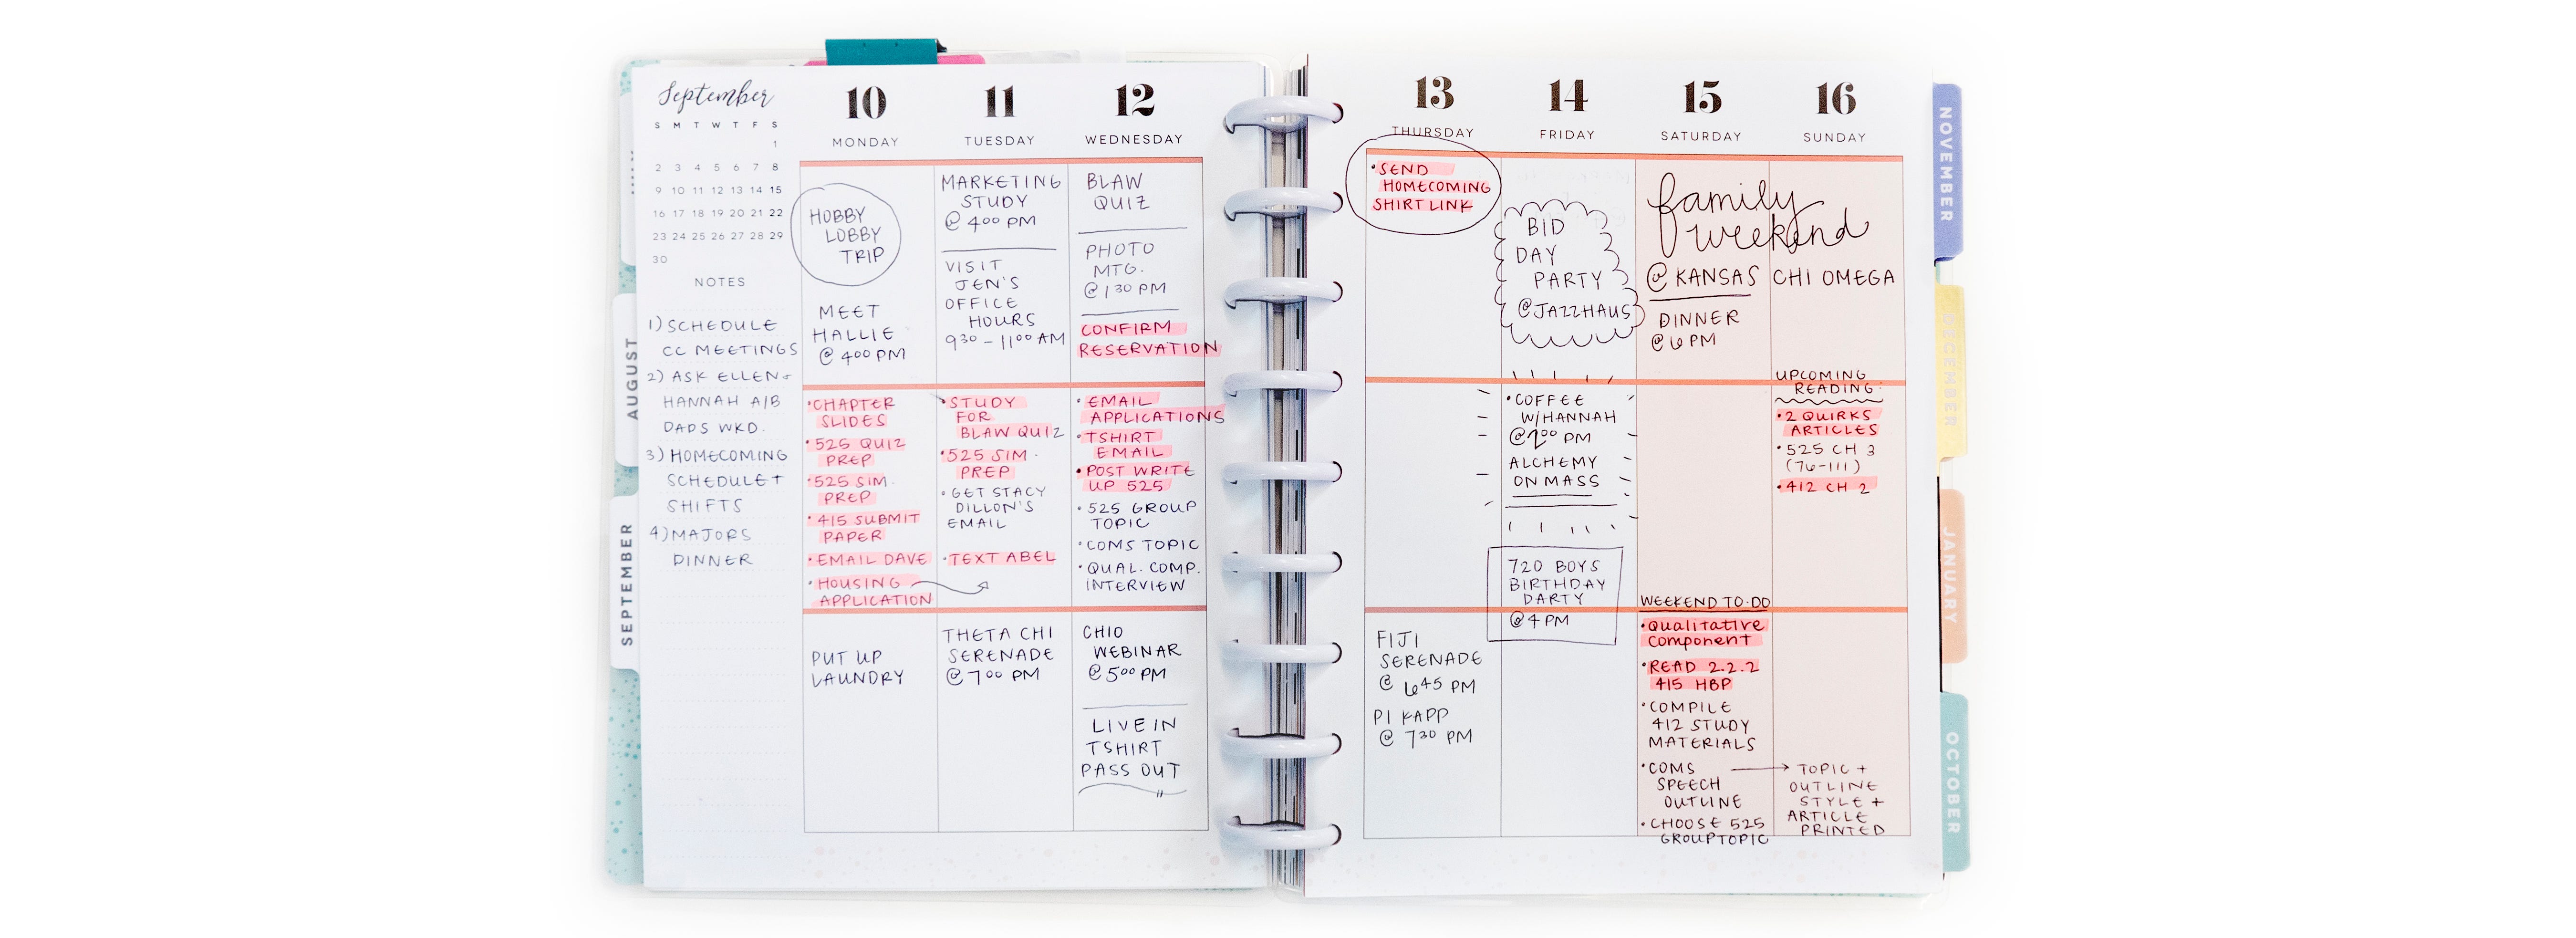 September
S M T W T F S
1
2 3 4 5 6 7 8
9 10 11 12 13 14 15
16 17 18 19 20 21 22
23 24 25 26 27 28 29
30
NOTES
1) SCHEDULE
CC MEETINGS
2) ASK ELLEN +
HANNAH A/B
DADS WKD.
3) HOMECOMING
SCHEDULE +
SHIFTS
4) MAJORS
DINNER
AUGUST
SEPTEMBER
10
MONDAY
HOBBY
LOBBY
TRIP
MEET
HALLIE
@ 4:00 PM
•CHAPTER
SLIDES
•525 QUIZ
PREP
•525 SIM.
PREP
•415 SUBMIT
PAPER
•EMAIL DAVE
•HOUSING
APPLICATION
PUT UP
LAUNDRY
11
TUESDAY
MARKETING
STUDY
@ 4:00 PM
VISIT
JEN'S
OFFICE
HOURS
9:30 - 11:00 AM
•STUDY
FOR
BLAW QUIZ
•525 SIM.
PREP
•GET STACY
DILLON'S
EMAIL
•TEXT ABEL
THETA CHI
SERENADE
@ 7:00 PM
12
WEDNESDAY
BLAW
QUIZ
PHOTO
MTG.
@ 1:30 PM
CONFIRM
RESERVATION
•EMAIL
APPLICATIONS
•TSHIRT
EMAIL
•POST WRITE
UP 525
•525 GROUP
TOPIC
•COMS TOPIC
•QUAL. COMP.
INTERVIEW
CHIO
WEBINAR
@ 5:00 PM
LIVE IN
TSHIRT
PASS OUT
13
THURSDAY
•SEND
HOMECOMING
SHIRT LINK
FIJI
SERENADE
@ 6:45 PM
PI KAPP
@ 7:30 PM
14
FRIDAY
BID
DAY
PARTY
@JAZZHAUS
•COFFEE
W/HANNAH
@2:00 PM
ALCHEMY
ON MASS
720 BOYS
BIRTHDAY
DARTY
@ 4 PM
15
SATURDAY
16
SUNDAY
family
weekend
@ KANSAS CHI OMEGA
DINNER
@ 6 PM
WEEKEND TO-DO
•Qualitative
Component
•READ 2.2.2
415 HBP
•COMPILE
412 STUDY
MATERIALS
•COMS
SPEECH
OUTLINE
•CHOOSE 525
GROUP TOPIC
UPCOMING
READING:
•2 QUIRKS
ARTICLES
•525 CH 3
(76-111)
•412 CH 2
TOPIC +
OUTLINE
STYLE +
ARTICLE
PRINTED
NOVEMBER
DECEMBER
JANUARY
OCTOBER